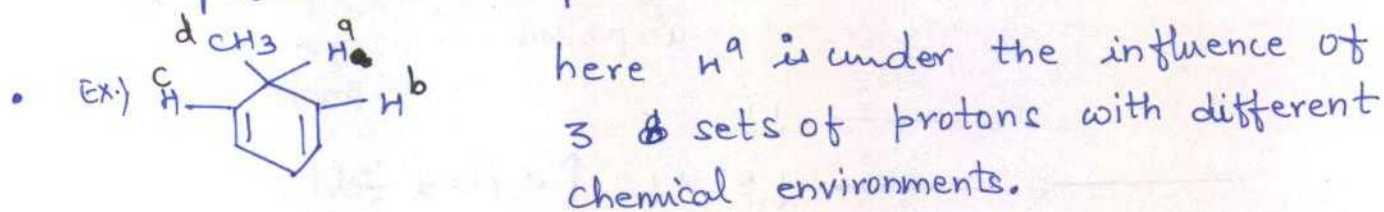 d CH3 Ha
• Ex.) c H b H
here Ha is under the influence of
3 sets of protons with different
chemical environments.